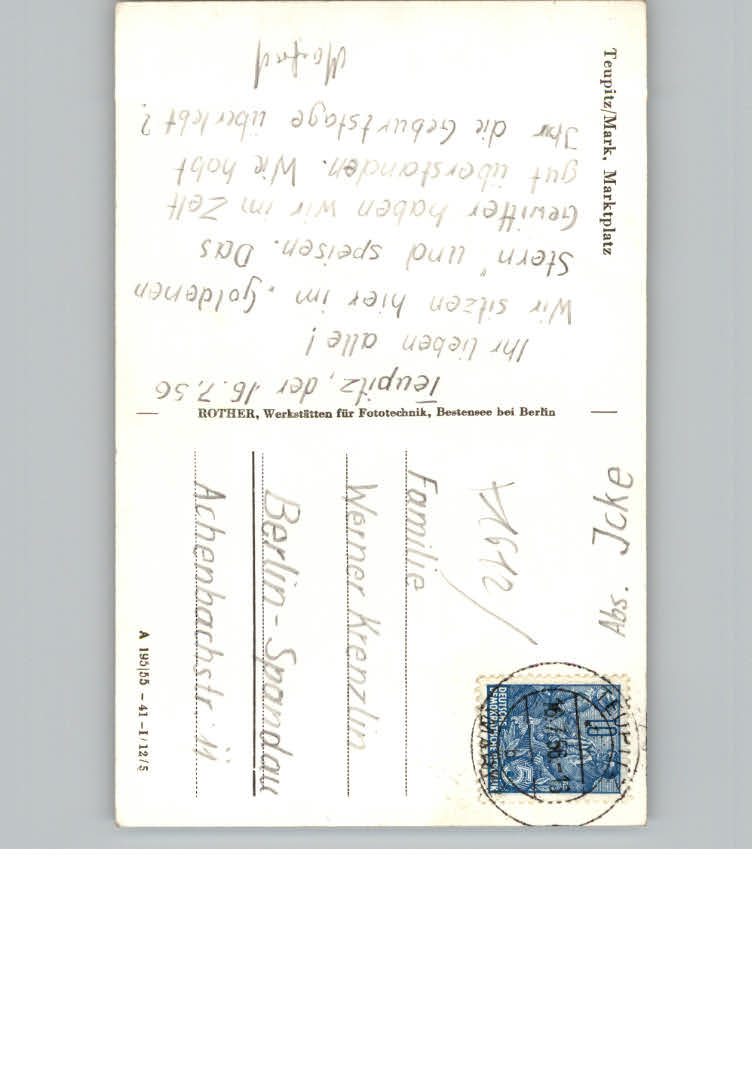 Teupitz/Mark, Marktplatz
Teupitz, der 16.7.56
Ihr lieben alle!
Wir sitzen hier im „Goldenen
Stern“ und speisen. Das
Gewitter haben wir im Zelt
gut überstanden. Wie habt
Ihr die Geburtstage überlebt?
ROTHER, Werkstätten für Fototechnik, Bestensee bei Berlin
Abs. Icke
Familie
Werner Krenzlin
Berlin-Spandau
Achenbachstr. 11
A 195/55 - 41 - I/12/5
10
DEUTSCHE
DEMOKRATISCHE REPUBLIK
16.7.56